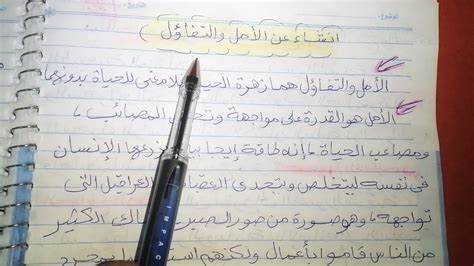 انشاء عن الأمل والتفاؤل )
الأمل والتفاؤل هما زهرة الحياة فلا معنى للحياة بدونهما
الأمل هو القدرة على مواجهة وتحمل المصائب ،
ومصاعب الحياة ، إنه طاقة إيجابية يزرعها الإنسان
في نفسه ليتخلص ويتحدى العقبات العراقيل التي
تواجهه ، وهو صورة من صور الصبر هناك الكثير
من الناس قاموا بأعمال ولكنهم
IMPAC